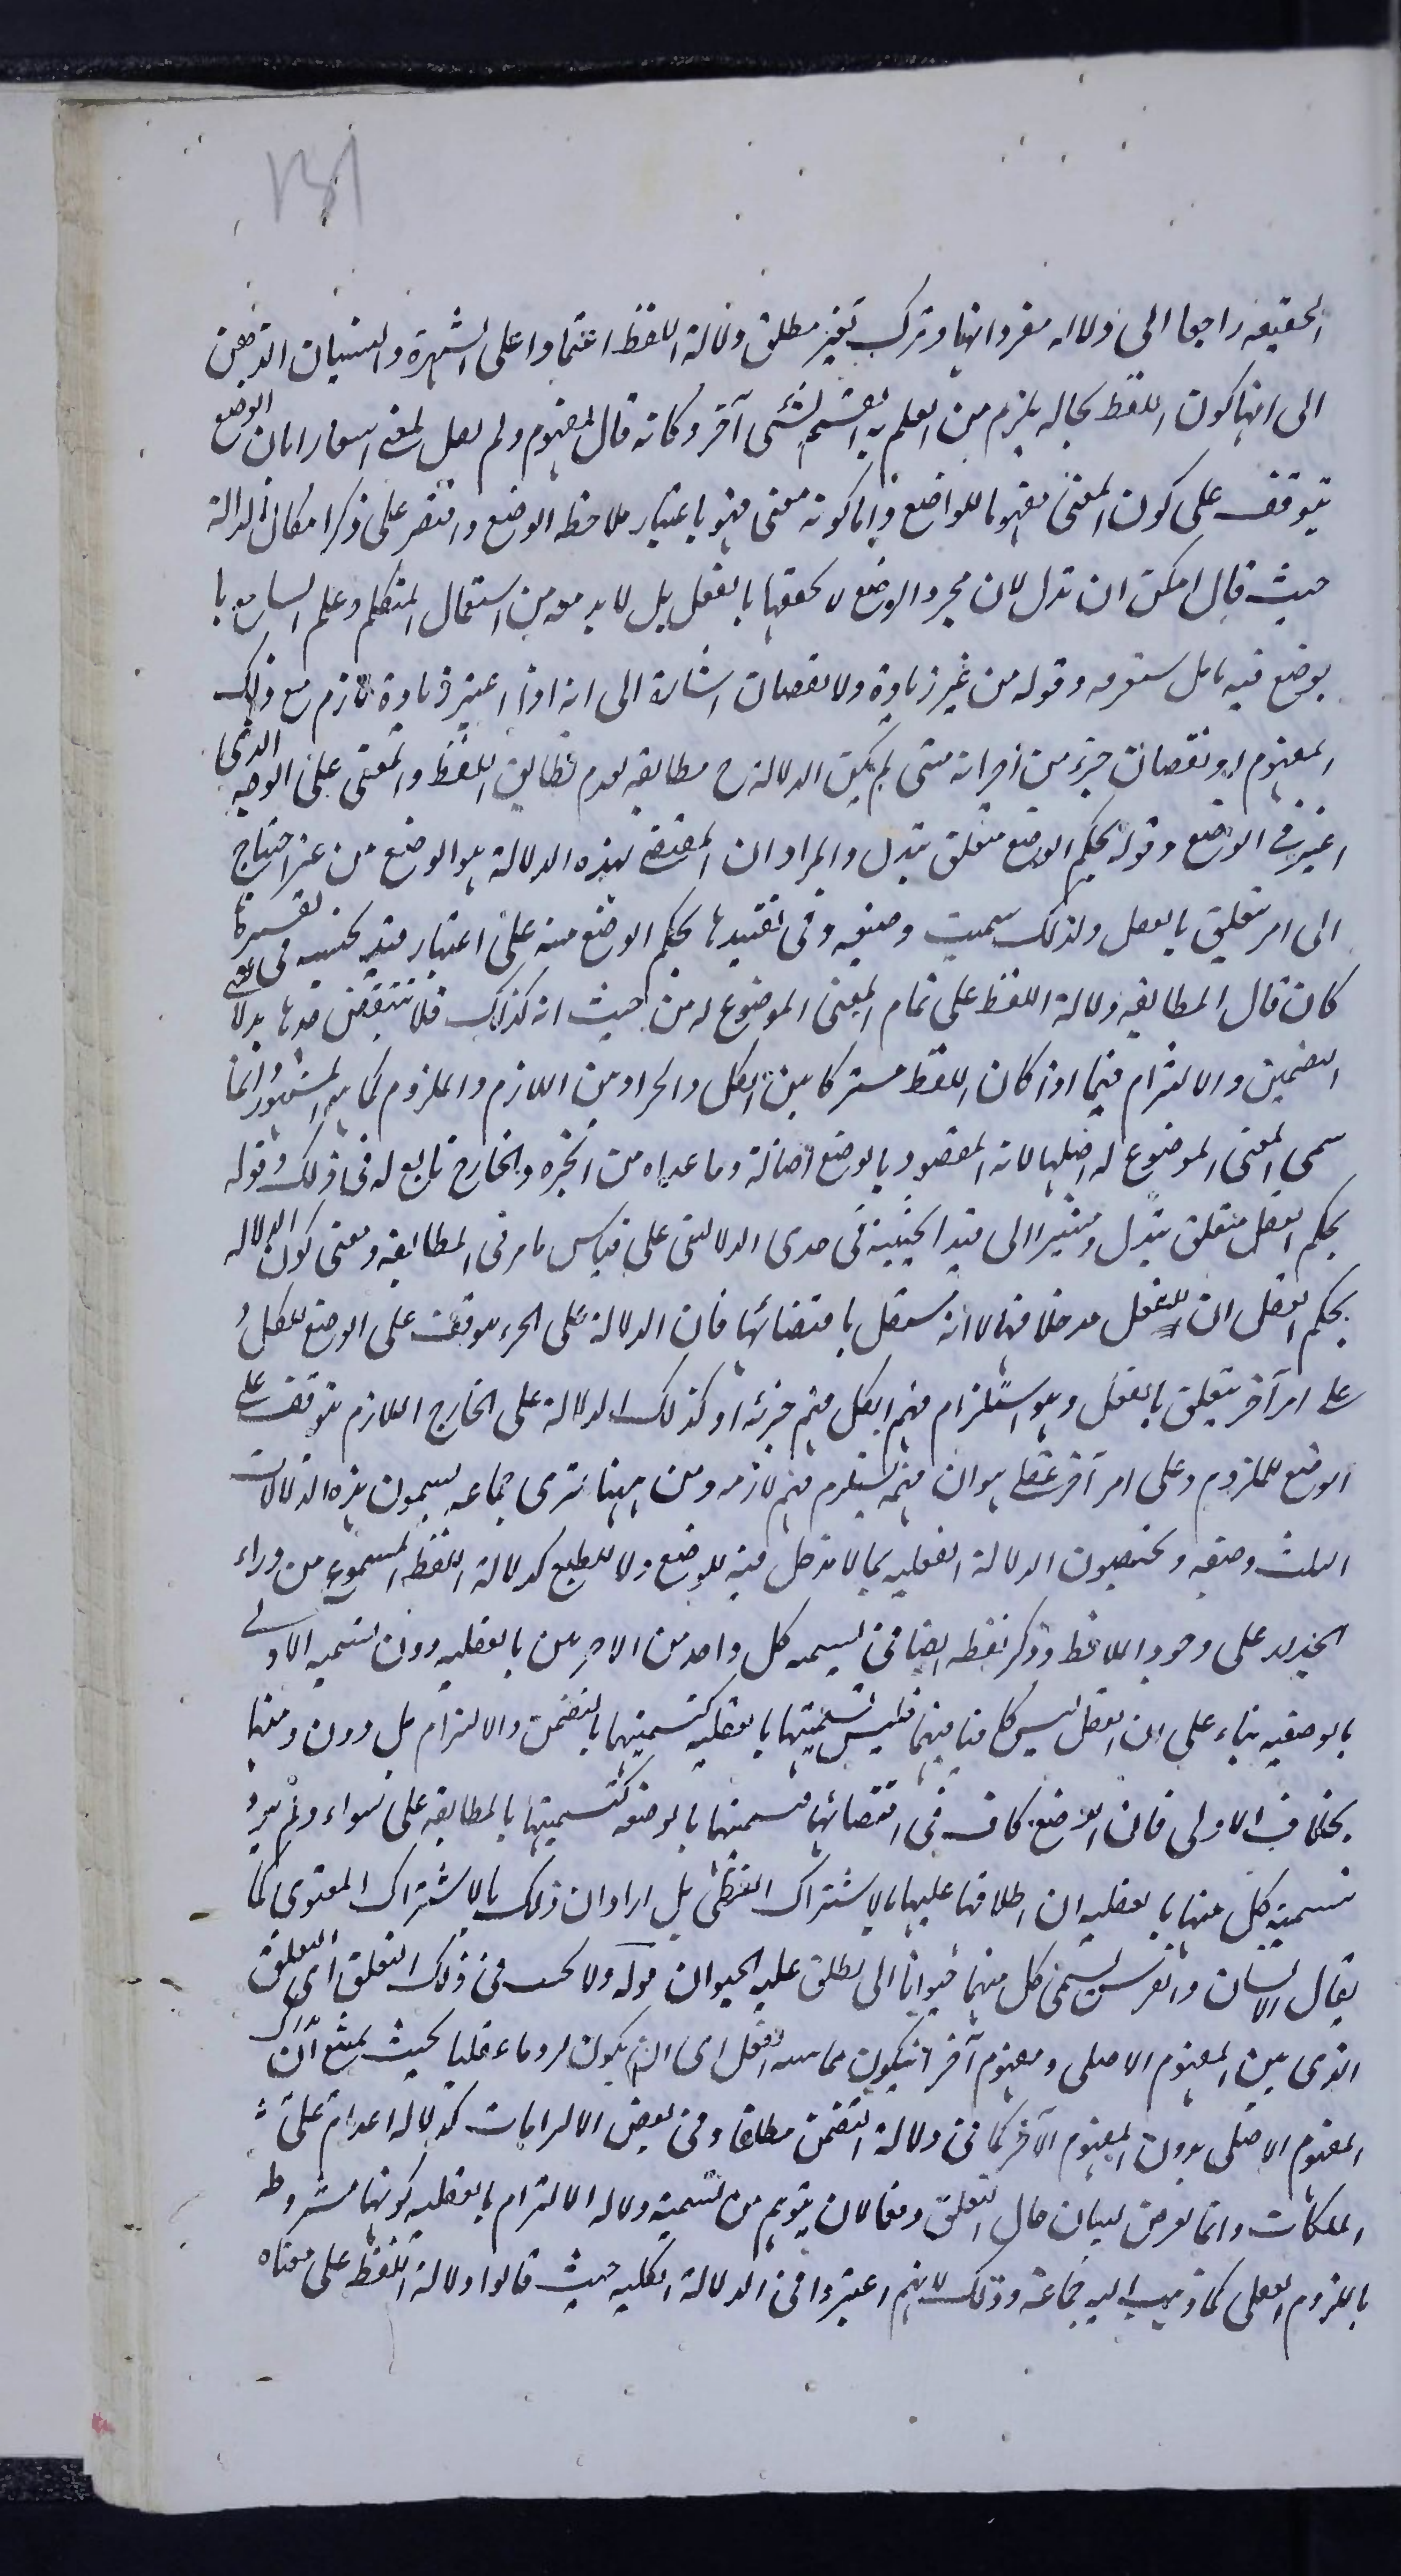 131
الحقيقه راجعا الى دلاله مفرداتها وترك تفسير مطلق دلالة اللفظ اعتمادا على الشهرة والتبيان الذهن
الى انها كون اللفظ بحاله يلزم من العلم به العلم بشئ آخر وكانه قال المفهوم ولم يقل المعنى اشعارا بان الوضع
يتوقف على كون المعنى مفهوما للواضع واما كونه معنى فهو باعتبار ملاحظه الوضع واقتصر على ذكر امكان الدلالة
حيث قال امكن ان تدل لان مجرد الوضع لا يحققها بالفعل بل لا بد معه من استعمال المتكلم وعلم السامع با
لوضع فيه تامل ستعرفه وقوله من غير زيادة ولا نقصان اشارة الى انه اذا اعتبر زيادة لازم مع ذلك
المفهوم او نقصان جزء من اجزائه حتى لم يكن الدلالة ح مطابقه لعدم تطابق اللفظ والمعنى على الوجه الذى
اعتبر فى الوضع وقوله بحكم الوضع متعلق بتدل والمراد ان المقتضى لهذه الدلالة هو الوضع من غير احتياج
الى امر يتعلق بالعقل ولذلك سميت وضعيه وفى تقييدها بحكم الوضع تنبيه على اعتبار قيد الحيثيه فى تفسيرها
كانه قال المطابقه دلالة اللفظ على تمام المعنى الموضوع له من حيث انه كذلك فلا ينتقض حدها بدلالتى
التضمن والالتزام فيما اذا كان اللفظ مشتركا بين الكل والجزء او بين اللازم والملزوم كما هو المشهور وانما
سمى المعنى الموضوع له اصليا لانه المقصود بالوضع اصالة وما عداه من الجزء والخارج تابع له فى ذلك وقوله
بحكم العقل متعلق بتدل ومشيرا الى قيد الحيثية فى حدى الدلالتى على قياس ما مر فى المطابقه ومعنى كون الدلاله
بحكم العقل ان للعقل مدخلا فيها لا انه مستقل باقتضائها فان الدلالة على الجزء موقوف على الوضع للكل و
على امر آخر يتعلق بالعقل وهو استلزام فهم الكل فهم جزئه وكذلك الدلالة على الخارج اللازم يتوقف على
الوضع للملزوم وعلى امر آخر عقلى هو ان فهمه يستلزم فهم لازمه ومن ههنا ترى جماعه يسمون هذه الدلالات
الثلث وضعيه ويخصون الدلالة العقليه بما لا مدخل فيه للوضع ولا للطبع كدلالة اللفظ المسموع من وراء
الجدار على وجود اللافظ وذكر لفظه ايضا فى تسميه كل واحد من الاخريين بالعقليه دون تسميه الاولى
بالوضعيه بناء على ان العقل ليس كافيا فيهما فليس تسميتها بالعقليه كتسميتهما بالتضمن والالتزام بل دون ذلك
بخلاف الاولى فان الوضع كاف فى اقتضائها فتسميتها بالوضعيه كتسميتها بالمطابقه على سواء ولم يرد
بتسمية كل منهما بالعقليه ان اطلاقها عليها بالاشتراك اللفظى بل اراد ان ذلك بالاشتراك المعنوى كما
يقال الانسان والفرس يسمى كل منهما حيوانا اى يطلق عليه الحيوان قوله ولا يجب فى ذلك التعلق اى التعلق
الذى بين المفهوم الاصلى ومفهوم آخر ان يكون مما يثبته العقل اى ان يكون لزوما عقليا بحيث يمتنع ان يدرك
المفهوم الاصلى بدون المفهوم الآخر كما فى دلالة التضمن مطلقا وفى بعض الالتزامات كدلاله اعدام على
الملكات وانما تعرض لبيان حال التعلق دفعا لان يتوهم من تسمية دلاله الالتزام بالعقليه كونها مشروطه
باللزوم العقلى كما ذهب اليه جماعة وذلك لانهم اعتبروا فى الدلالة الكليه حيث قالوا دلالة اللفظ على معناه